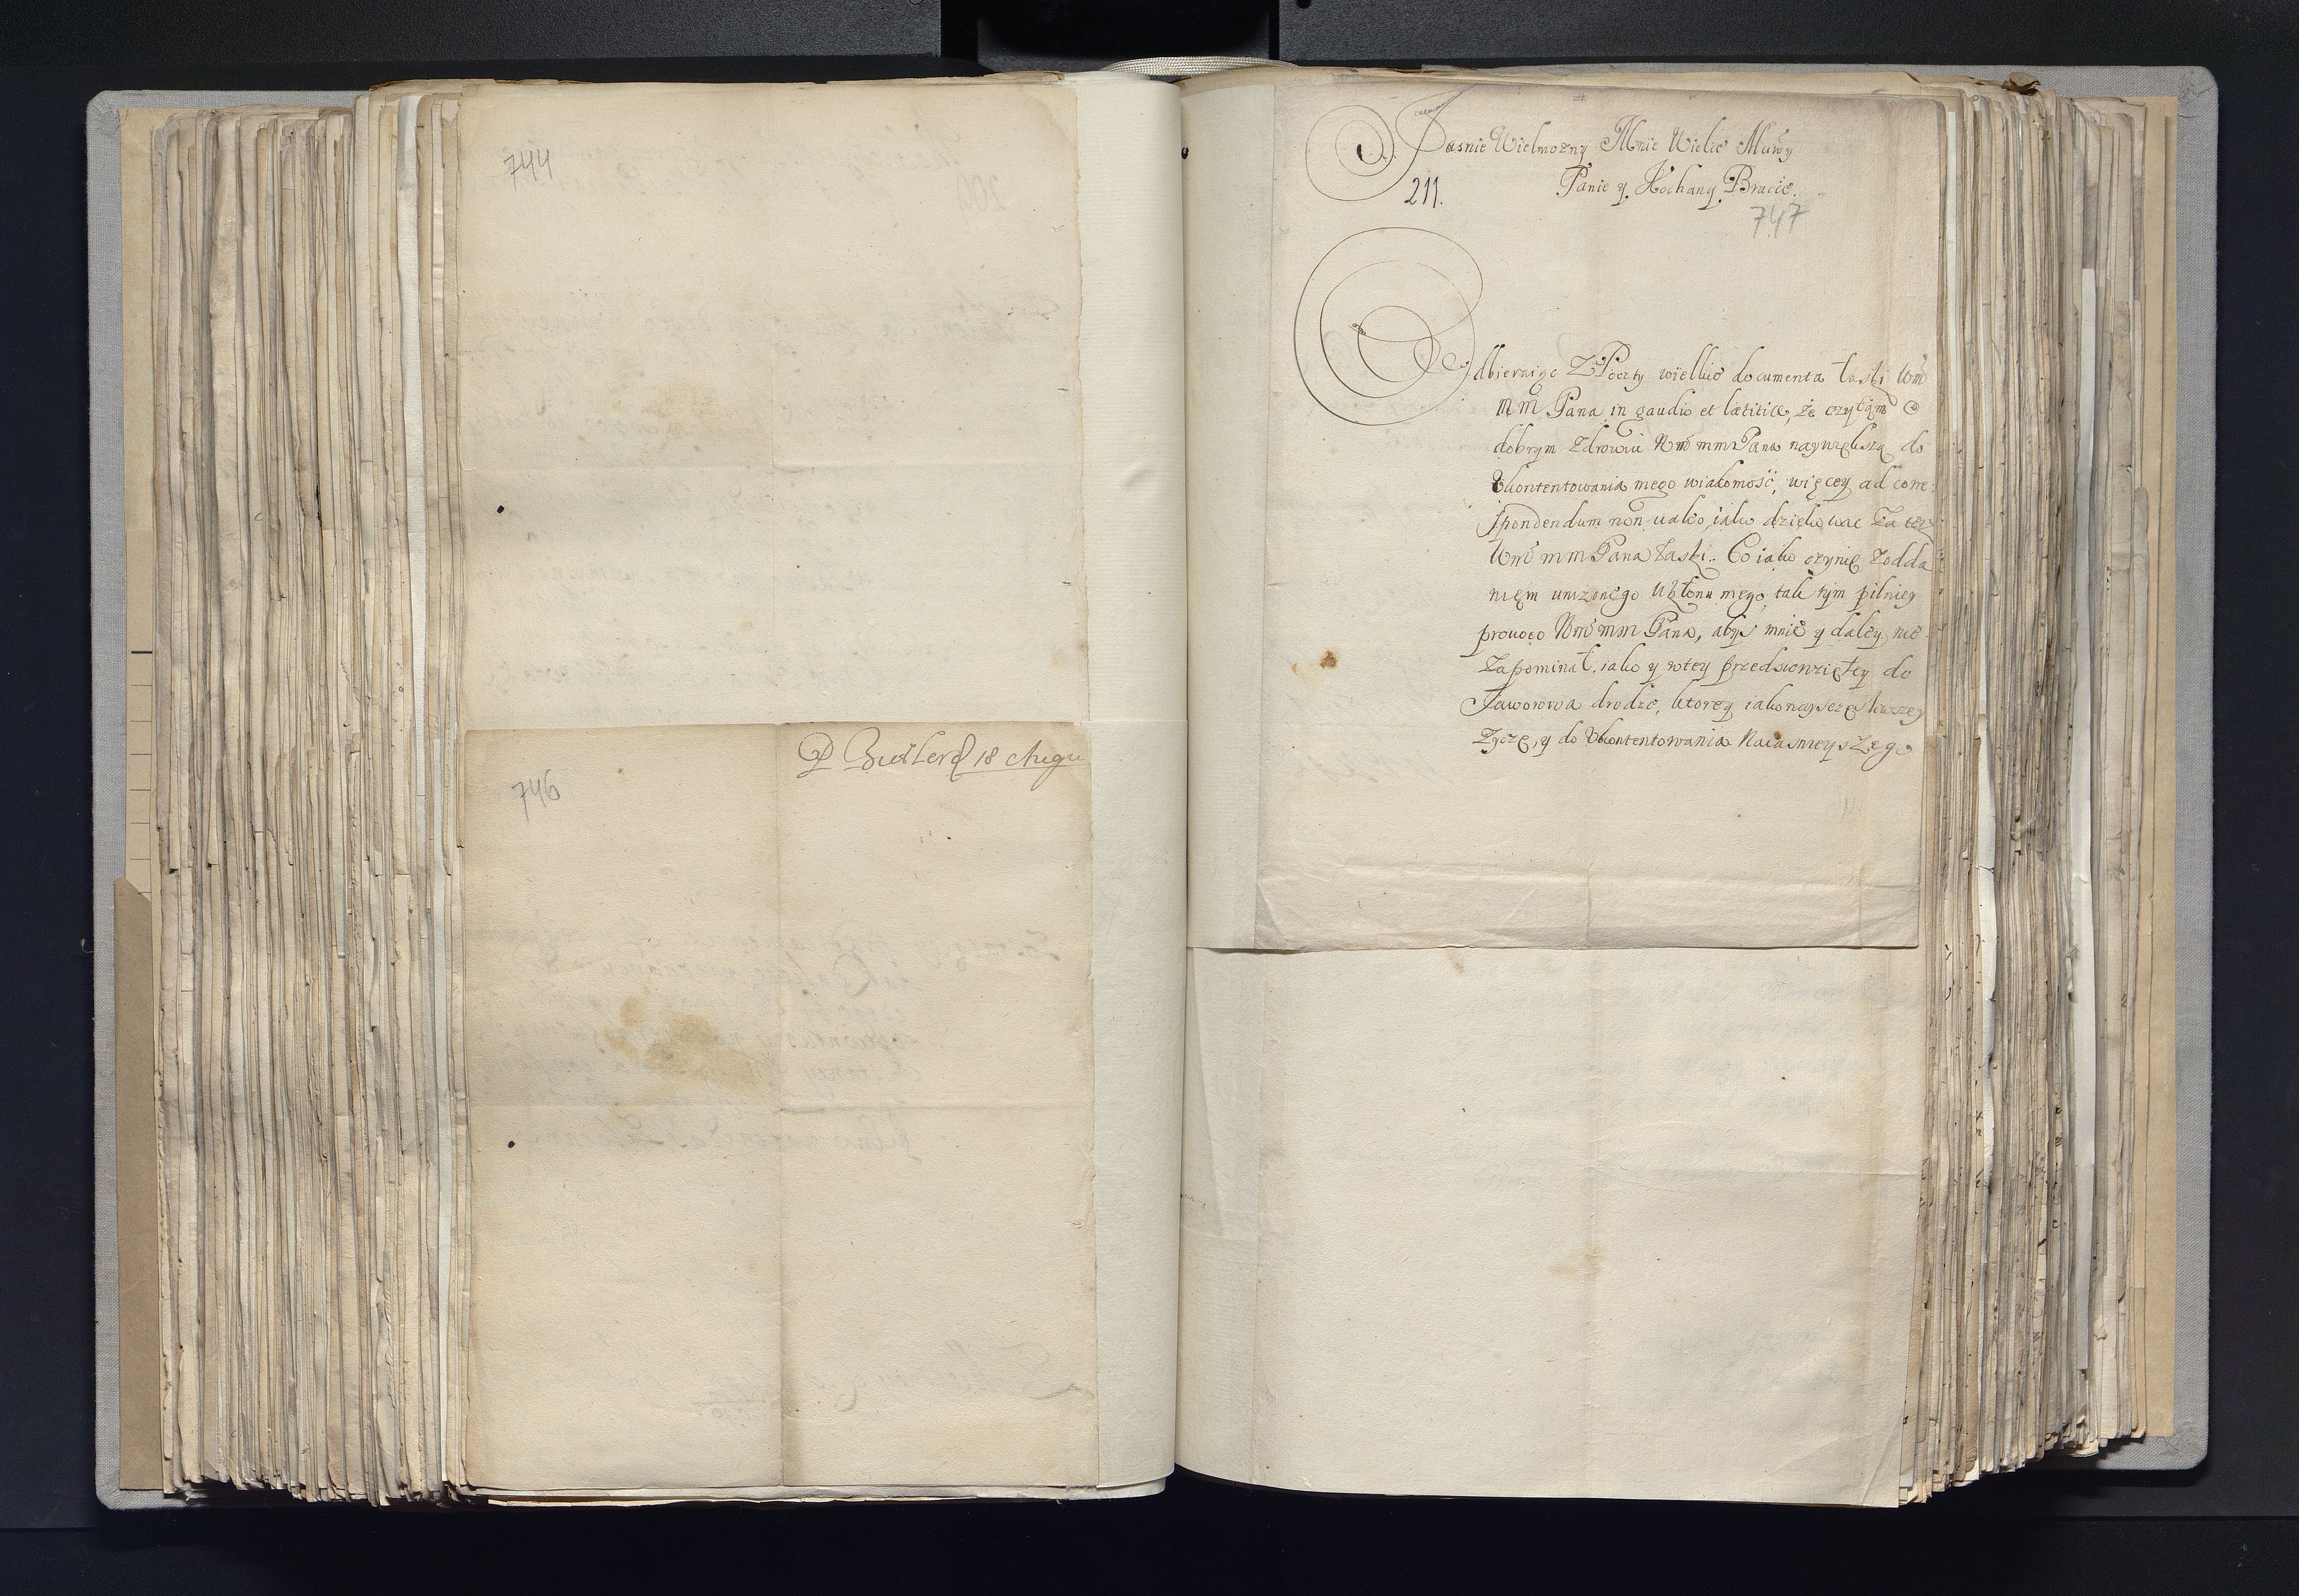 744
746
P Butler d 18 Augu
Jasnie Wielmozny Mnie Wielce Mciwy
211.
Panie y Kochany Bracie.
747
Odbieraiąc z Poczty wielkie documenta łaski Wm̃
mm̃ Pana in gaudio et lætitia, że czytam o
dobrym zdrowiu Wm̃ mm Pana naywiększą do
Ukontentowania mego wiadomość, więcey ad corre:
spondendum non valeo, iako dziękować za
Wm̃ mm Pana łaski. Co iako czynię z odda
niem unizonego ukłonu mego, tak tym pilniey
provoco Wm̃ mm Pana, abyś mnie y daley nie
zapominał, iako y wtey przedsiewziętey do
Jaworowa drodze, ktorey iako nayszczęsliwszey
życzę, y do Ukontentowania Naiasnieyszego